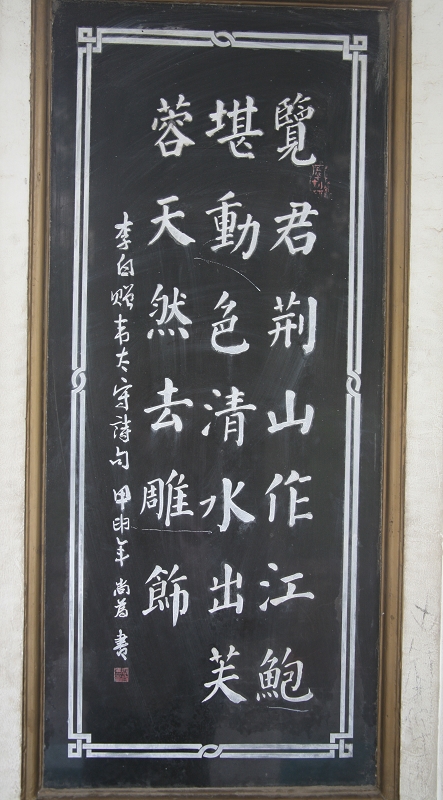 覽君荆山作江鮑
堪動色清水出芙
蓉天然去雕飾
李白贈韦太守詩句 甲申年 尚為書